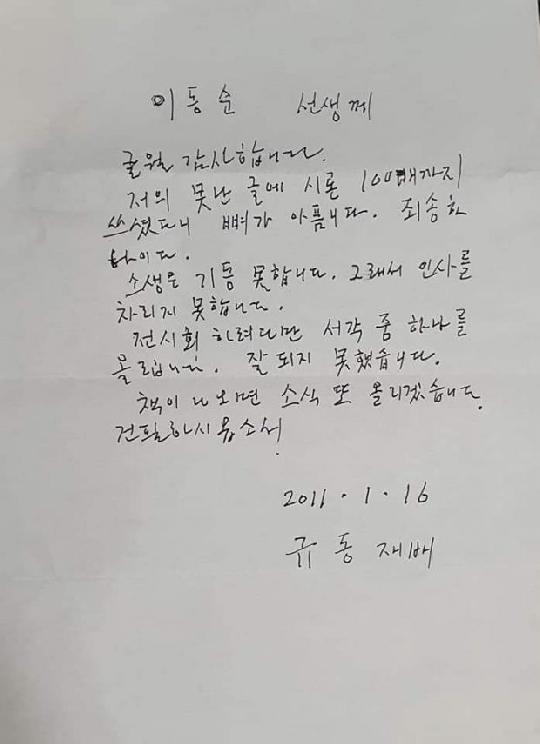 이동순 선생께
글월 감사합니다.
저의 못난 글에 시론 100매까지
쓰셨다니 뼈가 아픕니다. 죄송하
나이다.
소생은 기동 못합니다. 그래서 인사를
차리지 못합니다.
전시회 하려다만 서각 중 하나를
올립니다. 잘 되지 못했습니다.
책이 나오면 소식 또 올리겠습니다.
건필하시옵소서
2011 . 1 . 16
규동 재배